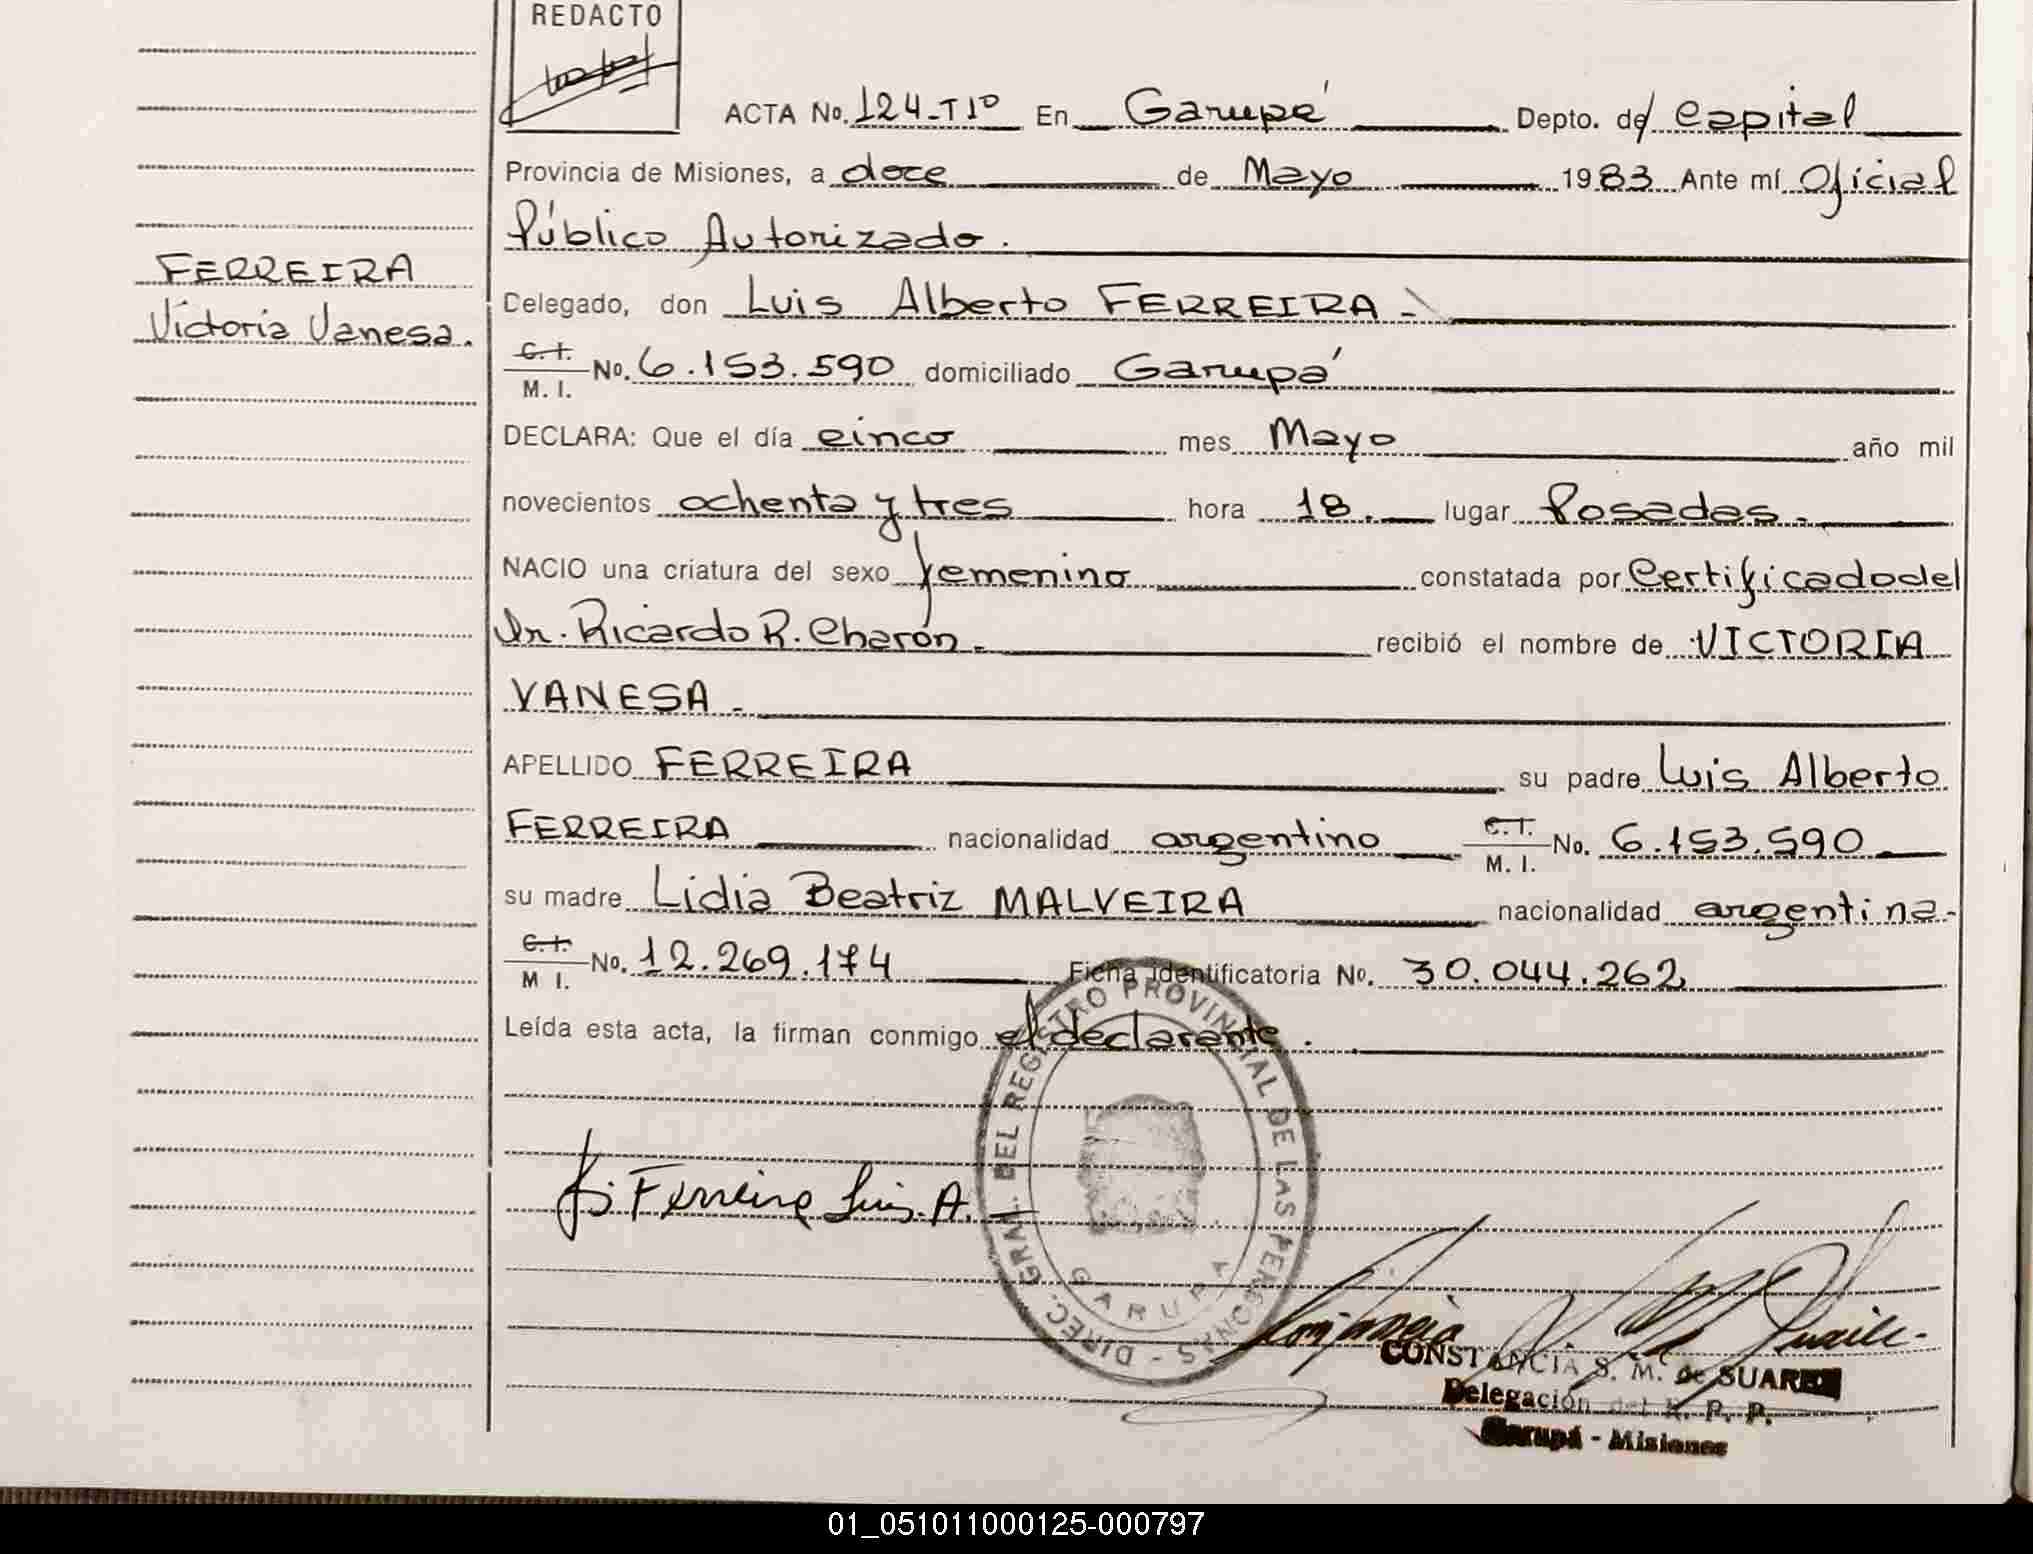 REDACTO
ACTA No. 124-Tº1º En Garupá Depto. de Capital
Provincia de Misiones, a doce de Mayo 1983 Ante mí Oficial
Público Autorizado.
FERREIRA
Victoria Vanesa.
Delegado, don Luis Alberto FERREIRA -
C. I. / M. I. No. 6.153.590 domiciliado Garupá
DECLARA: Que el día cinco mes Mayo año mil
novecientos ochenta y tres hora 18. lugar Posadas.
NACIO una criatura del sexo femenino constatada por Certificado del
Dr. Ricardo R. Charón. recibió el nombre de VICTORIA
VANESA -
APELLIDO FERREIRA su padre Luis Alberto
FERREIRA nacionalidad argentino C. I. / M. I. No. 6.153.590
su madre Lidia Beatriz MALVEIRA nacionalidad argentina-
C. I. / M I. No. 12.269.174 Ficha Identificatoria No. 30.044.262
Leída esta acta, la firman conmigo el declarante.
DIREC. GRAL. DEL REGISTRO PROVINCIAL DE LAS PERSONAS -
GARUPA
Ferreira Luis. A.
CONSTANCIA S. M. de SUAREZ
Delegación del R. P. P.
Garupá - Misiones
01_051011000125-000797